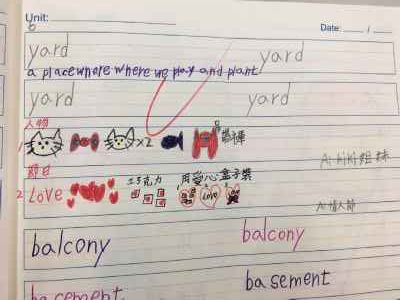 Unit: 6
Date: /
yard yard
a place where where we play and plant
yard yard
人物
1 ×2
A: 姐妹
節日
2 LOVE 巧克力 用愛心盒子裝
LOVE
A: 情人節
balcony balcony
basement basement